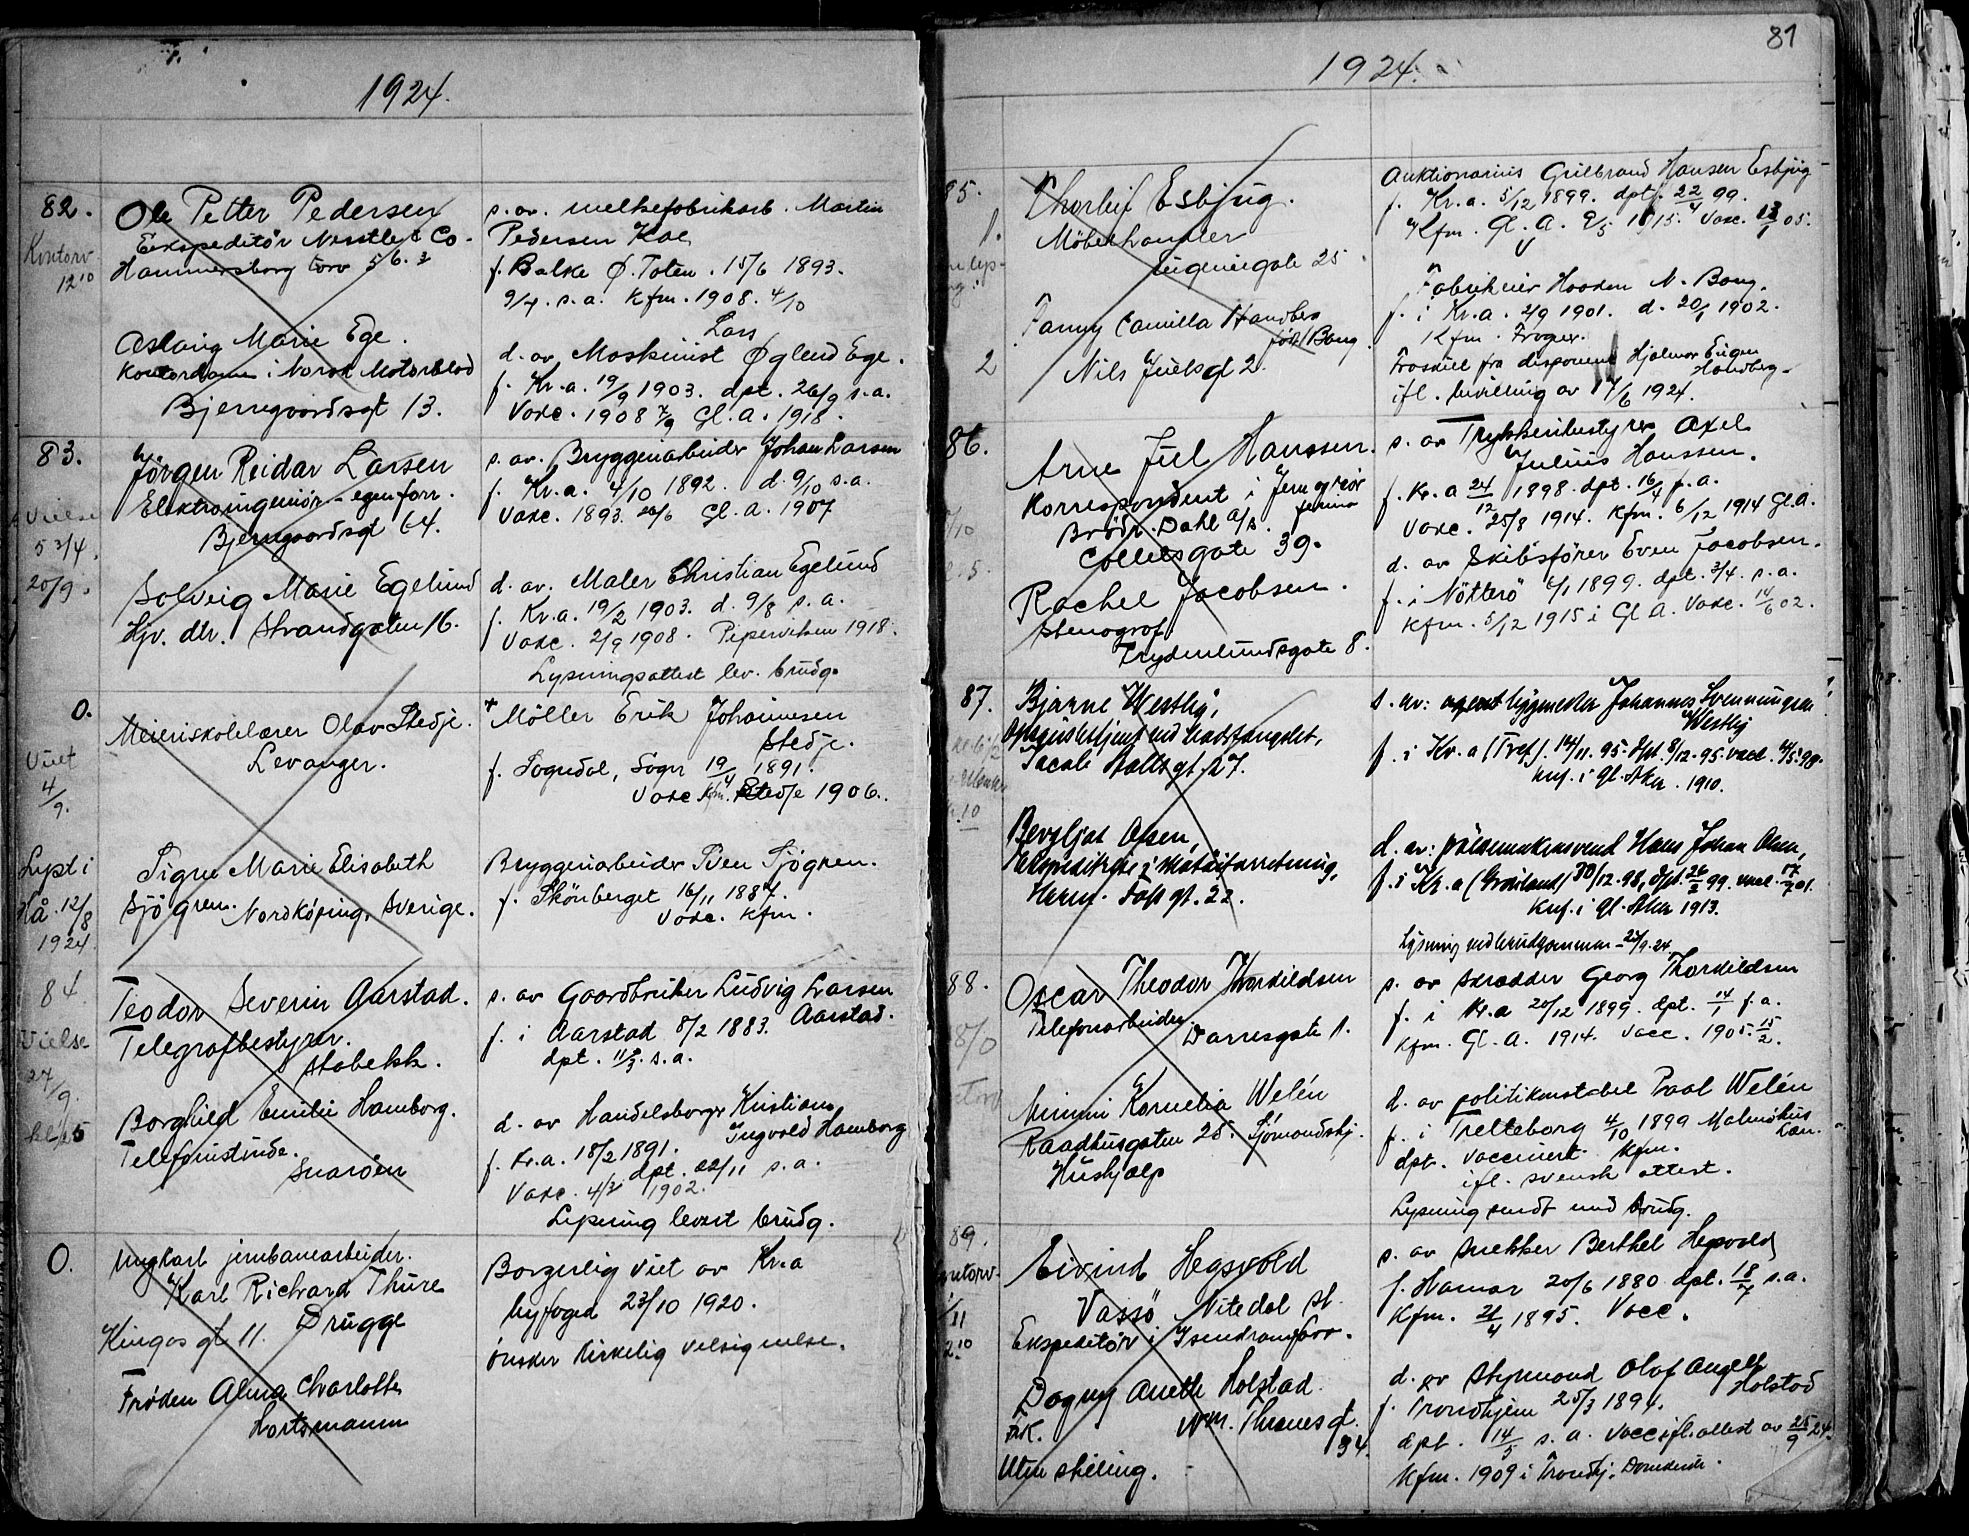 1924.
82.
Kontorv
12 10
Ole Petter Pedersen
Ekspeditör Nesstle & Co.
Hammersborg torv 5/6. 3
s. av. melkefabrikarb. Martin
Pedersen
f. Balke Ø. Toten. 15/6 1893.
9/7. s.a. Kfm. 1908. 4/10
Aslaug Marie Ege.
Kontordame i Norsk Motorblad
Bjerregaardsgt 13.
Lars
d. av. Maskinist Øglend Ege.
f. Kr.a. 19/9 1903. dpt. 26/9 s.a.
Vakc. 1908 7/9 Gl. A. 1918.
83.
Vielse
5 3/4.
20/9.
Jörgen Reidar Larsen
Elektroingeniör - egen forr.
Bjerregaardsgt 64.
s. av. Bryggeriarbeider Johan Larsen
f. Kr.a. 4/10 1892. d. 9/10 s.a.
Vakc. 1893. 26/6 Gl. A. 1907
Solveig Marie Egelund
Hjv. dtr. Strandgaten 16.
d. av. Maler Christian Egelund
f. Kr.a. 19/2 1903. d. 9/8 s.a.
Vakc. 2/9 1908. Piperviken 1918.
Lysningsattest lev. brudg.
0.
Viet
4/9.
Meieriskolelærer Olav Stedje.
Levanger.
Möller Erik Johannesen
Stedje.
f. Sogndal, Sogn 19/4 1891.
Vakc Kfm. Stedje 1906.
Lyst i
12/8
1924
Signe Marie Elisabeth
Sjögren. Nordköping, Sverige.
Bryggeriarbeider Sven Sjögren.
f. Skönberget 16/11 1887.
Vakc. Kfm.
84.
Vielse
27/9.
kl. 5
Teodor Severin Aarstad.
Telegrafbestyrer.
Stabekk.
s. av Gaardbruker Ludvig Larsen
Aarstad.
f. i Aarstad 8/2 1883.
dpt. 11/3. s.a.
Borghild Emilie Hamborg.
Telefonistinde.
Snaröen
d. av Handelsborger Kristian
Ingvald Hamborg
f. Kr.a. 18/2 1891.
dpt. 22/11 s.a.
Vakc. 4/3 1902.
Lysning levert brudg.
0.
Ungkarl jernbanearbeider.
Karl Richard Thure
Drugge
Kingos gt 11.
Borgerlig viet av Kr.a
byfoged 23/10 1920.
önsker kirkelig velsignelse.
Fröken Alma Charlotte
Hortsmann
81
1924.
85.
1.
Thorleif Esbjug.
Möbelhandler
Eugeniegate 25.
Auktionarius Gulbrand Hansen Esbjug
f. Kr.a. 5/12 1899. dpt. 22/4 99.
Kfm. Gl. A. 9/5 1915. Vakc. 05.
2
Fanny Camilla Handberg
född Bang.
Nils Juels gt 2.
Fabrikeier Haaken N. Bang.
f. i Kr.a. 2/9 1901. d. 20/1 1902.
Kfm. Frogner.
Fraskilt fra disponent Hjalmar Eugen
Handberg.
ifl. bevilling av 17/6 1924.
86.
Arne Jul Hanssen.
Korrespondent i Jern og
Brödr. Dahl A/S.
Colletsgate 39.
s. av Trykkeribestyrer Axel
Julius Hanssen.
f. Kr.a 24/12 1898. dpt. 16/4 f.a.
Vakc. 25/8 1914. Kfm. 6/12 1914 Gl.A.
Rachel Jacobsen.
Stenograf
Frydenlundsgate 8.
d. av Skibsförer Even Jacobsen.
f. i Nötterö 6/1 1899. dpt. 3/4. s.a.
Kfm. 5/12 1915 i Gl A. Vakc. 14/6 02.
87.
Bjarne Westby,
Opsynsbetjent ved Bodsfængslet,
Jacob Aallsgt. 27.
s. av: byggmester Johannes Svenningsen
Westby
f. i Kr.a (Tref). 14/11. 95. dpt. 8/12. 95. vacc. 4/5. 98.
knf. i Gl. Aker. 1910.
Bergljot Olsen,
Ekspeditrise
Herm. Fossgt. 22.
d. av: pölsemakersvend Hans Johan Olsen,
f. i Kr.a (Grönland) 30/12. 98, dpt. 26/2 99. vacc. 17/7 01.
Knf. i Gl. Aker 1913.
Lysning ved brudgommen - 23/9. 24.
88.
Oscar Theodor Thorkildsen
Telefonarbeider.
Darresgate 1.
s. av Skrædder Georg Thorkildsen
f. i Kr.a 20/12 1899. dpt. 14/1 f.a.
Kfm. Gl. A. 1914. Vacc. 1905. 15/2.
Mimmi Kornelia Welén
Raadhusgaten 25. Sjömandshj.
Hushjælp
d. av politikonstabel Paal Welén
f. i Trelleborg 4/10 1899 Malmöhus
Län.
dpt. vaccinert. Kfm.
ifl. svensk attest.
Lysning sendt med brudg.
89.
Kontorv.
11
Eivind Hegsvold
Vassö, Nitedal st.
Ekspeditör i
s. av Snekker Berthel Hegsvold
f. Hamar 20/6 1880 dpt. 18/7 s.a.
Kfm. 21/4 1895. Vacc.
Dagny Aneth Holstad.
Wm. Thranes gt.
34.
Uten stilling.
d. av Styrmand Olof August
Holstad
f. Trondhjem 25/3 1894.
dpt. 14/5 s.a. Vacc ifl. attest av 25/9 24.
Kfm. 1909 i Trondhj. Domkirke.